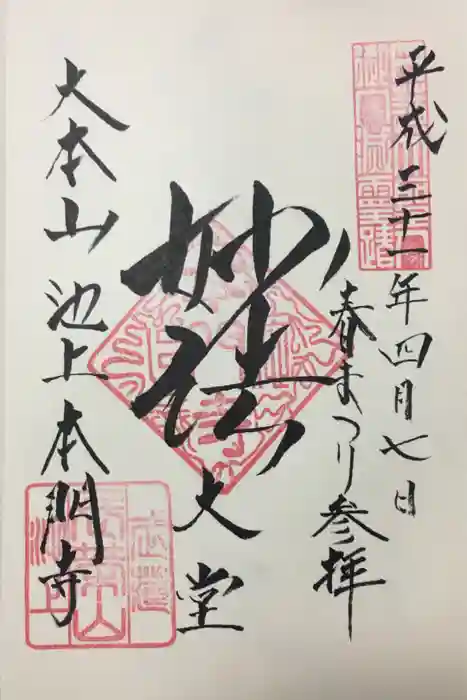 平成三十一年四月七日
春まつり参拝
妙法
大堂
大本山池上本門寺